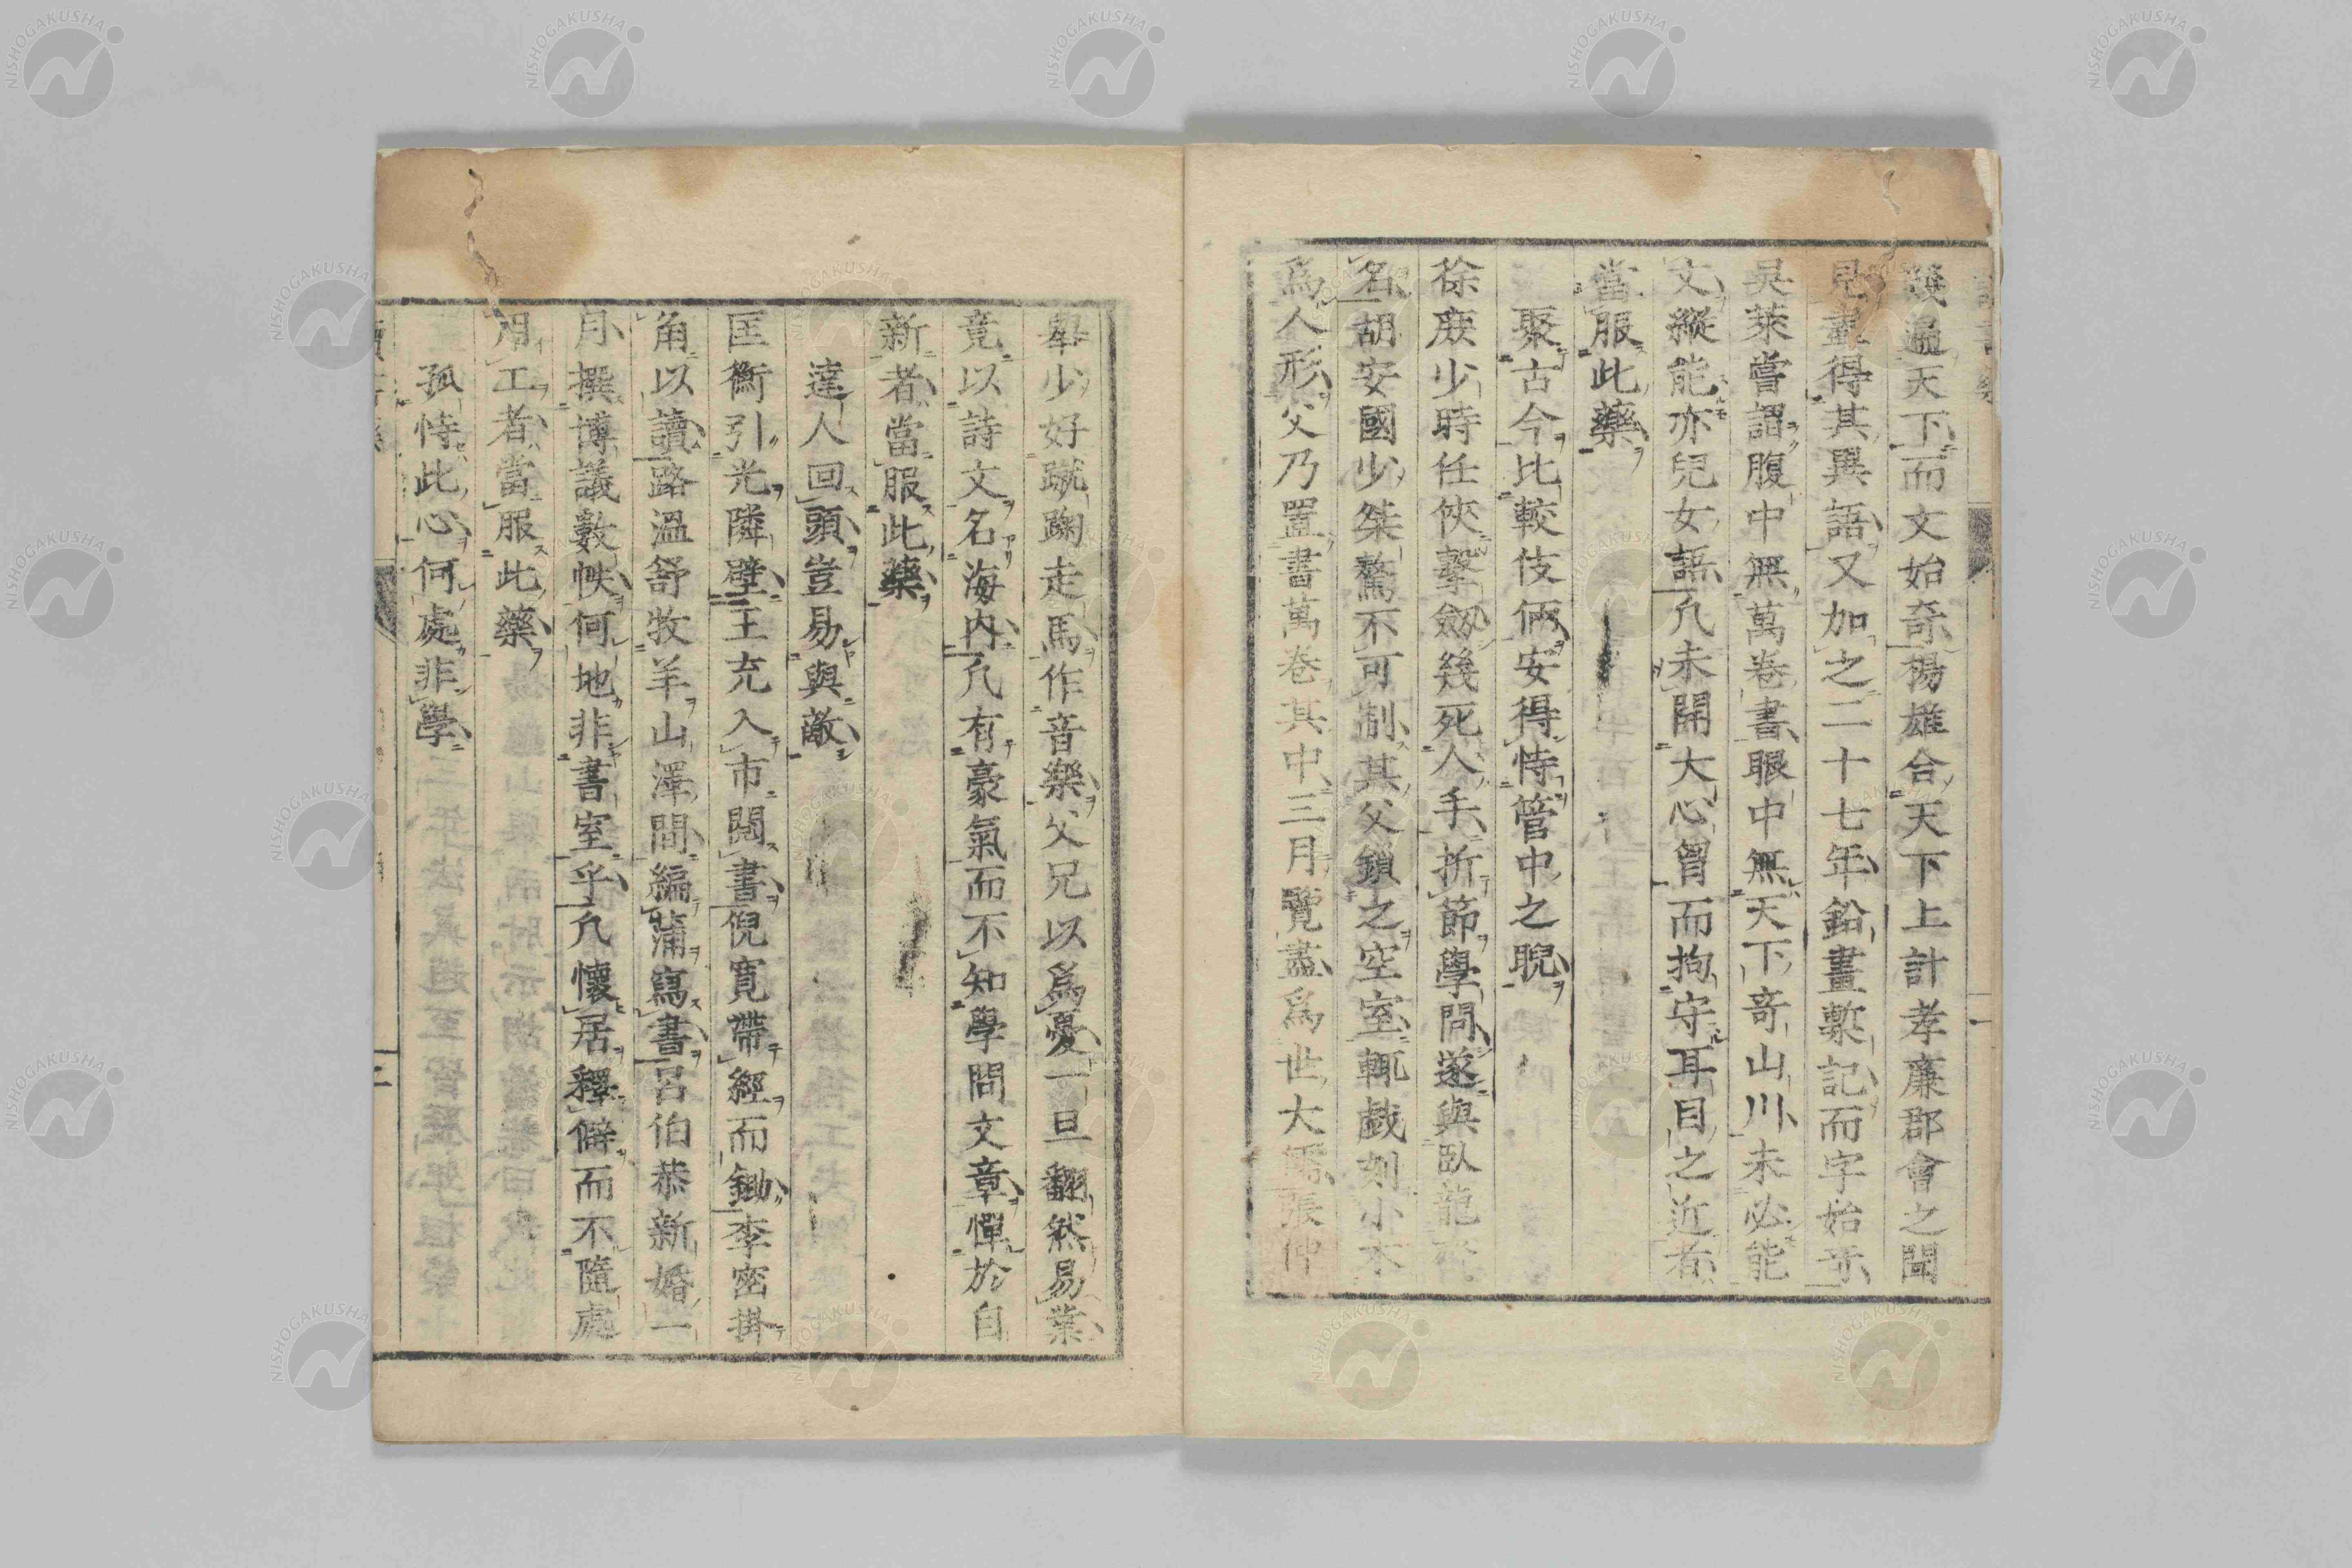 幾遍天下而文始奇楊雄合天下上計孝廉郡會之聞
見畫得其異語又加之二十七年鉛畫槧記而字始示
吳萊嘗謂腹中無萬卷書眼中無天下奇山川未必能
文縱能亦兒女語凢未開大心胷而拘守耳目之近者
當服此藥
聚古今比較伎倆安得恃管中之睨
徐庶少時任俠擊劔幾死人手折節學問遂與臥龍
名胡安國少桀驁不可制其父鎖之空室輒戯刻小木
為人形父乃置書萬卷其中三月覽盡為世大儒張仲
舉少好蹴踘走馬作音樂父兄以為憂一旦翻然易業
竟以詩文名海内凢有豪氣而不知學問文章憚於自
新者當服此藥
達人回頭豈易與敵
匡衡引光隣壁王充入市閱書倪寬帶經而鋤李密掛
角以讀路溫舒牧羊山澤間編蒲寫書呂伯恭新婚一
月撰博議數帙何地非書室乎凢懷居釋僻而不隨處
用工者當服此藥
孤恃此心何處非學
二
NISHOGAKUSHA